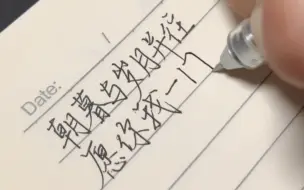 Date: /
朝暮与岁月并往
愿你我一